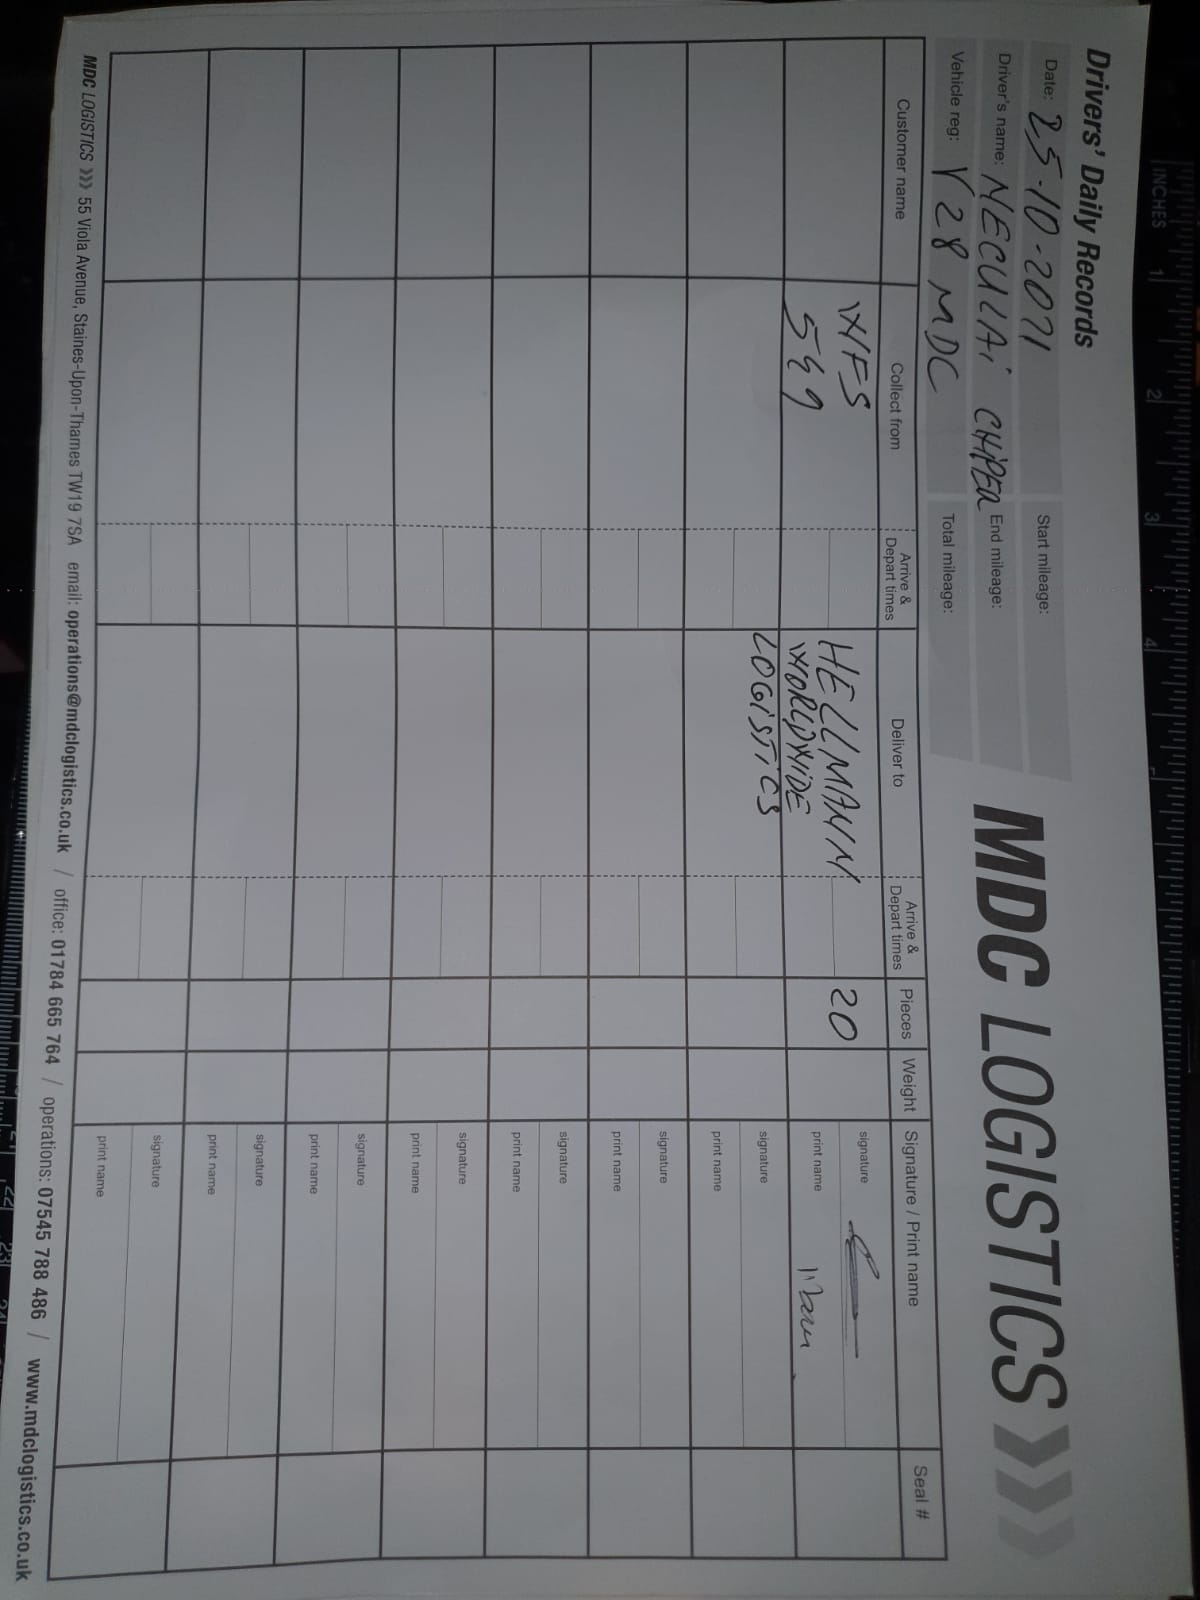 Drivers' Daily Records
MDC LOGISTICS
Date: 25-10-2021
Start mileage:
Driver's name: NECULAi CHiPER
End mileage:
Vehicle reg: V28 MDC
Total mileage:
Customer name
Collect from
Arrive &
Depart times
Deliver to
Arrive &
Depart times
Pieces
Weight
Signature / Print name
Seal #
WFS
549
HELLMANN
WORLDWIDE
LOGiSTiCS
20
signature
print name
signature
print name
signature
print name
signature
print name
signature
print name
signature
print name
signature
print name
signature
print name
MDC LOGISTICS >>> 55 Viola Avenue, Staines-Upon-Thames TW19 7SA email: operations@mdclogistics.co.uk / office: 01784 665 764 / operations: 07545 788 486 / www.mdclogistics.co.uk
INCHES
1
2
3
4